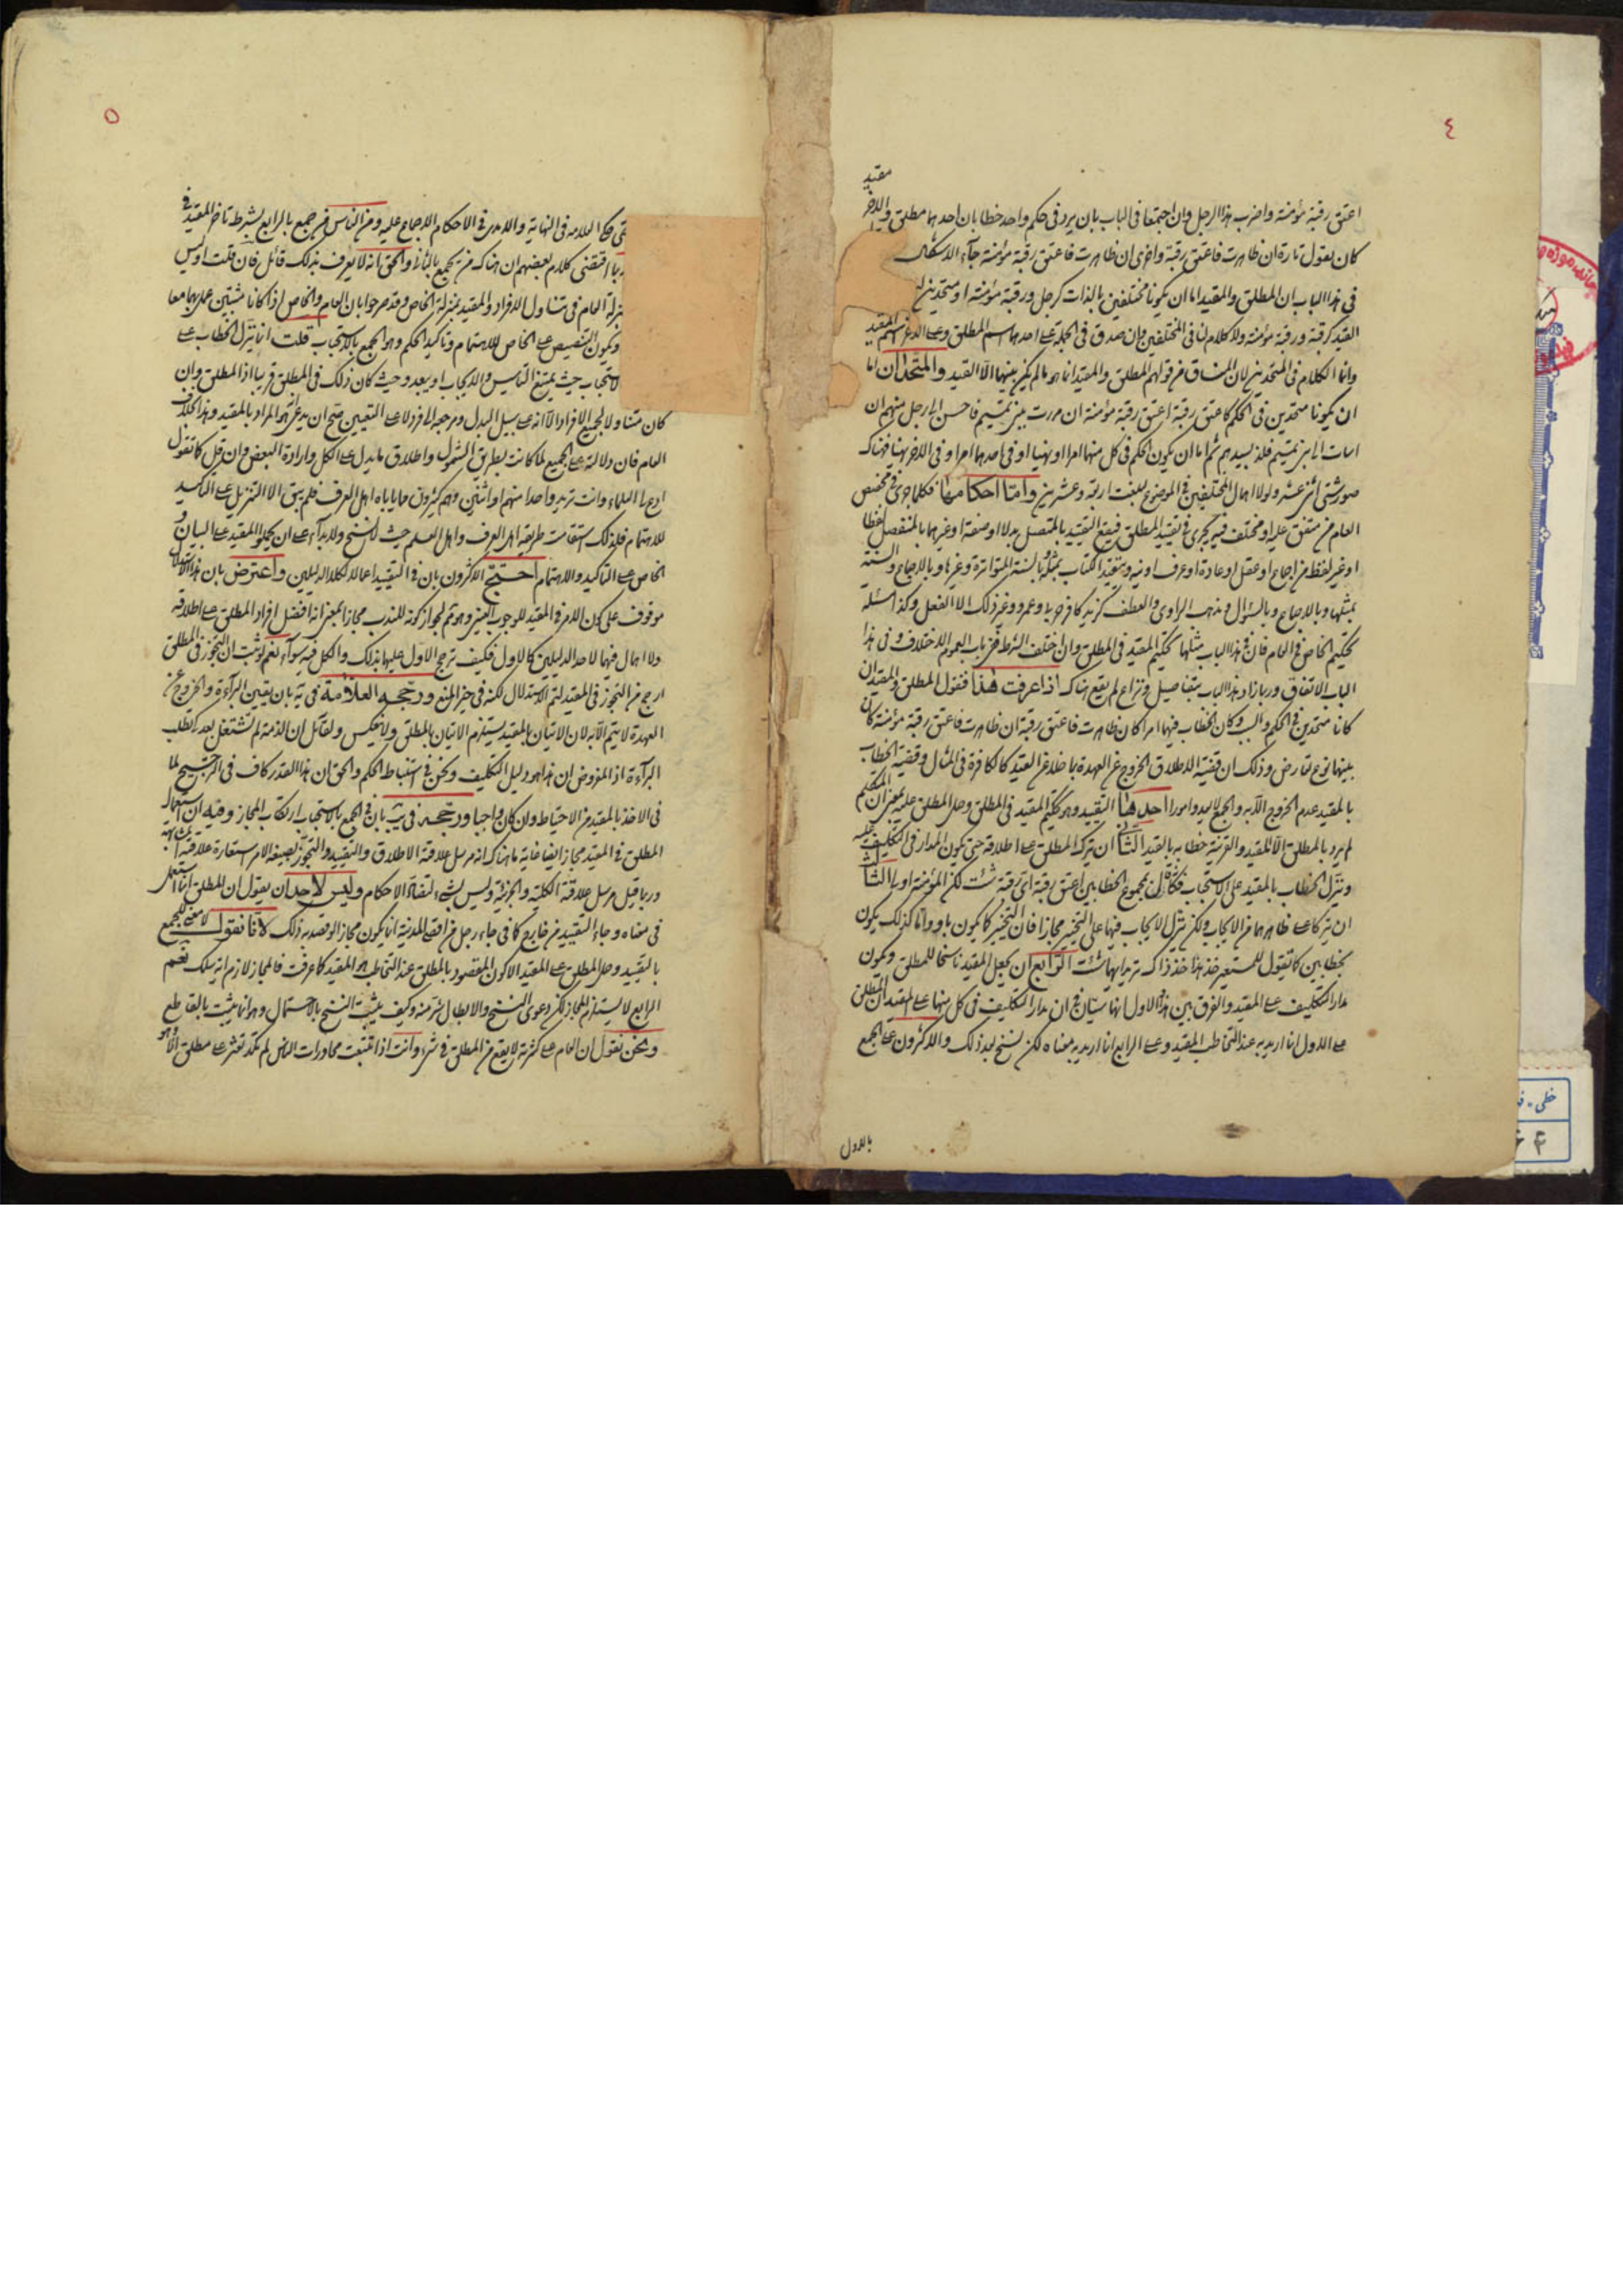 ٤
مقيد
اعتق رقبة مؤمنة واضرب هذا الرجل وان اجتمعا في الباب بان يرد في حكم واحد خطابان احدهما مطلق والاخر
كان يقول تارة ان ظاهرت فاعتق رقبة واخرى ان ظاهرت فاعتق رقبة مؤمنة جاء الاشكال
في هذا الباب ان المطلق والمقيد اما ان يكونا مختلفين بالذات كرجل ورقبة مؤمنة او متحدين
القيد كرقبة ورقبة مؤمنة ولا كلام لنا في المختلفين وان صدق في الجملة على احدهما اسم المطلق وعلى الاخر اسم المقيد
وانما الكلام في المتحدين لان المنساق من قولهم المطلق والمقيد انما هو ما لم يكن بينهما الا القيد والمتحدان اما
ان يكونا متحدين في الحكم كاعتق رقبة اعتق رقبة مؤمنة ان مررت ببني تميم فاحسن الى رجل منهم ان
اسات الى بني تميم فلذ بسيدهم ثم اما ان يكون الحكم في كل منهما امرا او نهيا او في احدهما امرا وفي الاخر نهيا فهناك
صور شتى اثنى عشر ولولا اهمال المختلفين في الموضوع لبلغت اربعة وعشرين واما احكامها فكلما جرى في تخصيص
العام من متفق عليه او مختلف فيه يجرى في تقييد المطلق فيقع التقييد بالمتصل بدلا او صفة او غيرهما بالمنفصل لفظا
او غير لفظ من اجماع او عقل او عادة او عرف او نية وتقييد الكتاب بمثله وبالسنة المتواترة وغيرها وبالاجماع والسنة
بمثلها وبالاجماع وبالسؤال ومذهب الراوى والعطف كزيد كافر حربا وعمرو وغير ذلك الا الفعل وكذا مسئلة
تحكيم الخاص في العام فان في هذا الباب مثلها تحكيم المقيد في المطلق وان اختلف الشرط فمن باب العموم الاختلاف وفي هذا
الباب الاتفاق وربما زاد هذا الباب بتفاصيل ونزاع لم يقع هناك اذا عرفت هذا فنقول المطلق والمقيد ان
كانا متحدين في الحكم والسبب وكان الخطاب فيهما امرا كان ظاهرت فاعتق رقبة ان ظاهرت فاعتق رقبة مؤمنة كان
بينهما نوع تعارض وذلك ان قضية الاطلاق الخروج عن العهدة بما خلا عن القيد كالكافرة في المثال وقضية الخطاب
بالمقيد عدم الخروج الا به والجمع لاحد وامورا احدها التقييد وهو تحكيم المقيد في المطلق وحمل المطلق عليه بمعنى ان المتكلم
لم يرد بالمطلق الا المقيد والقرينة خطابه بالقيد الثاني ان يترك المطلق على اطلاقه حتى يكون المدار في التكليف عليه
وينزل الخطاب بالمقيد على الاستحباب فكانه قال بمجموع الخطابين اعتق رقبة اى رقبة شئت لكن المؤمنة اولى الثالث
ان يتركا على ظاهرهما من الايجاب ولكن ينزل الايجاب فيهما على التخيير مجازا فان التخيير كما يكون باو واما كذلك يكون
بخطابين كما تقول للمستعير خذ هذا خذ ذاك تريد ايهما شئت الرابع ان يجعل المقيد ناسخا للمطلق ويكون
مدار التكليف على المقيد والفرق بين هذا والاول انهما سيان في ان مدار التكليف في كل منهما على المقيد ان المطلق
على الاول انما اريد به عند التخاطب المقيد وعلى الرابع انما اريد به معناه لكن نسخ بعد ذلك والاكثرون على الجمع
بالاول
٥
حكى العلامه في النهاية والامدى في الاحكام الاجماع عليه ومن الناس من جمع بالرابع بشرط تاخر المقيد وفي
ربما اقتضى كلام بعضهم ان هناك من يجمع بالثانى والحق انه لا يعرف بذلك قائل فان قلت اوليس
العام في تناول الافراد والمقيد بمنزلة الخاص وقد صرحوا بان العام والخاص اذا كانا مثبتين عمل بهما معا
ويكون التنصيص على الخاص للاهتمام وتاكيد الحكم وهو الجمع بالاستحباب قلت انما ينزل الخطاب على
الاستحباب حيث يمتنع التاسيس والايجاب او يبعد وحيث كان ذلك في المطلق قريبا اذ المطلق وان
كان متناولا لجميع الافراد الا انه على سبيل البدل ومرجعه الى فرد لا على التعيين صح ان يدعى انه هو المراد بالمقيد وهذا بخلاف
العام فان دلالته على الجميع لما كانت بطريق الشمول واطلاق ما يدل على الكل وارادة البعض وان قل كما تقول
ادع لى العلماء وانت تريد واحدا منهم او اثنين وهم كثيرون مما ياباه اهل العرف فلم يبق الا التنزيل على التاكيد
للاهتمام فلذلك استقامت طريقة اهل العرف واهل العلم حيث لا نسخ ولا بداء على ان يحملوا المقيد على البيان و
الخاص على التاكيد والاهتمام احتج الاكثرون بان في التقييد اعمالا لكلا الدليلين واعترض بان هذا الاستدلال
موقوف على كون الامر في المقيد للوجوب العينى وهو ثم لجواز كونه للندب مجازا بمعنى انه افضل افراد المطلق على اطلاقه
ولا اهمال فيهما لاحد الدليلين كالاول فكيف ترجح الاول عليها بذلك والكل فيه سواء نعم لو ثبت ان التجوز في المطلق
ارجح من التجوز في المقيد لتم الاستدلال لكنه في حيز المنع ورجحه العلامة في يه بان يقين البراءة والخروج عن
العهدة لا يتم الا به لان الاتيان بالمقيد يستلزم الاتيان بالمطلق ولا ينعكس ولقائل ان الذمة لم تشتغل بعد كى تطلب
البراءة اذ المفروض ان هذا هو دليل التكليف ونحن في استنباط الحكم والحق ان هذا القدر كاف في الترجيح لما
في الاخذ بالمقيد من الاحتياط وان كان واجبا ورجحه في يب بان في الجمع بالاستحباب ارتكاب المجاز وفيه ان استعمال
المطلق في المقيد مجاز ايضا غاية ما هناك انه مرسل علاقة الاطلاق والتقييد والتجوز بصيغة الامر استعارة علاقته المشابهة
وربما قيل مرسل علاقته الكلية والجزئية وليس بشئ لتضاد الاحكام وليس لاحد ان يقول ان المطلق انما استعمل
في معناه وجاء التقييد من خارج كما في جاء رجل من اقصى المدينة انما يكون مجازا لو قصد به ذلك لانا نقول لا معنى للجمع
بالتقييد وحمل المطلق على المقيد الا كون المقصود بالمطلق عند التخاطب هو المقيد كما عرفت فالمجاز لازم اية سلك نعم
الرابع لا يستلزم المجاز لكن دعوى النسخ والابطال شر منه وكيف يثبت النسخ بالاحتمال وهو انما يثبت بالقاطع
ونحن نقول ان العام على كثرته لا يقع من المطلق في شئ وانت اذا تتبعت محاورات الناس لم تكد تعثر على مطلق الا وهو